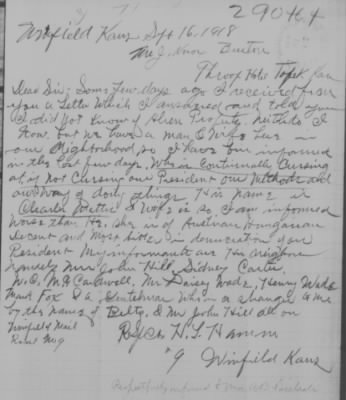 290464
Winfield Kans Sept. 16, 1918
Mr. J. Knox Burton
Throop Hotel Topek Kan
Dear Sir: Some few days ago I received from
you a Letter Which I answered and told you
I did not know of Alien Property neither do I
Now. but we have a man & Wife here in
our Neighborhood so I have been informed
in the last few days. Who is Continually Cursing
if not Cursing our President our Methods and
our Way of doing things. His name is
Charlie & Wife is so I am informed
Worse than He. She is of Austrian Hungarian
Decent and Most bitter in denunciation of our
President My informants are His neighbors
namely Mrs. John Hill, Sidney Carter,
W. C. McCardwell, Mr Daisey Wade, Henry Wade
Maud Fox & a Gentelman Who is a stranger to me
by the Name of Bilty. & Mr John Hill all on
Winfield Mail
Route No 9
Resp H. L. Hamm
9 Winfield Kans
Respectfully referred to